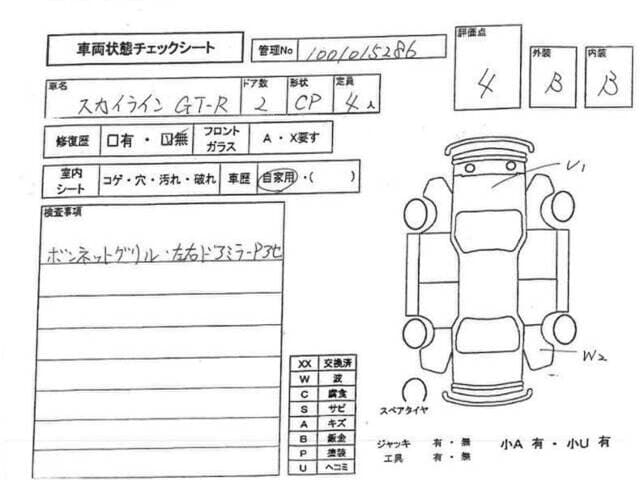 車両状態チェックシート
管理No 1001015286
評価点 4
外装 B
内装 B
車名 スカイライン GT-R
ドア数 2
形状 CP
定員 4人
修復歴 □有・☑無
フロントガラス A・X要す
室内シート コゲ・穴・汚れ・破れ
車歴 自家用・( )
検査事項
ボンネットグリル・左右ドアミラーP3セ
U1
W2
XX 交換済
W 波
C 腐食
S サビ
A キズ
B 鈑金
P 塗装
U ヘコミ
スペアタイヤ
ジャッキ 有・無
工具 有・無
小A 有・小U 有